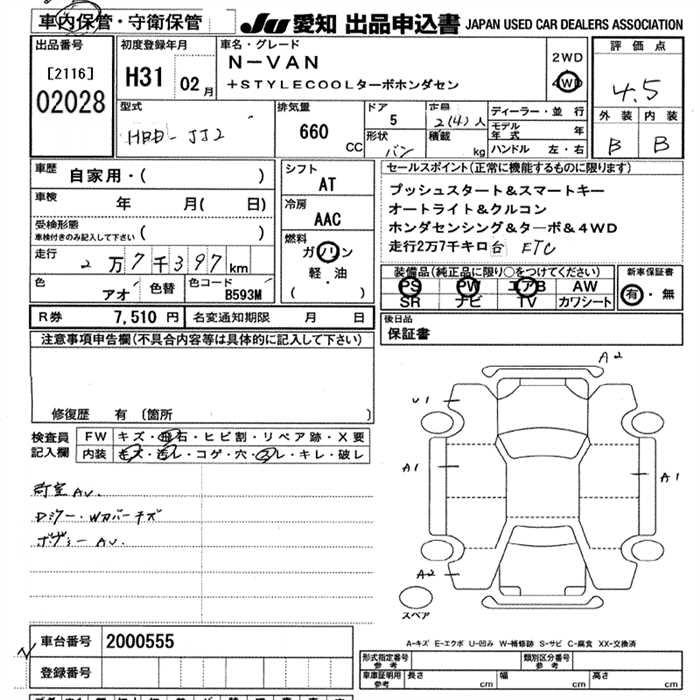 車内保管・守衛保管
JU 愛知 出品申込書 JAPAN USED CAR DEALERS ASSOCIATION
出品番号
[2116]
02028
初度登録年月
H31 02月
車名・グレード
N-VAN
+STYLECOOLターボホンダセン
2WD
4WD
評価点
4.5
外装 内装
B B
型式
HBD-JJ2
排気量
660
CC
ドア
5
形状
バン
定員
2(4)人
積載
kg
ディーラー・並行
モデル年式 年
ハンドル 左・右
車歴
自家用・( )
車検
年 月( 日)
受検形態
車検付きのみ記入して下さい ( )
走行
2万7千397km
色
アオ
色替
色コード
B593M
シフト
AT
冷房
AAC
燃料
ガソリン
軽・油
( )
セールスポイント(正常に機能するものに限ります)
プッシュスタート&スマートキー
オートライト&クルコン
ホンダセンシング&ターボ&4WD
走行2万7千キロ台 ETC
装備品(純正品に限り○をつけてください)
PS PW エアB AW
SR ナビ TV カワシート
新車保証書
有・無
R券 7,510円
名変通知期限 月 日
後日品
保証書
注意事項申告欄(不具合内容等は具体的に記入して下さい)
修復歴 有 〔箇所 〕
検査員
記入欄
FW キズ・飛石・ヒビ割・リペア跡・X要
内装 キズ・汚レ・コゲ・穴・スレ・キレ・破レ
荷室AV.
Dミラー・Wカバーキズ
ボディーAV.
A2
U1
A1
A1
A2
スペア
車台番号 2000555
登録番号
A-キズ E-エクボ U-凹み W-補修跡 S-サビ C-腐食 XX-交換済
形式指定番号
参考
類別区分番号
参考
車庫証明用
参考
長さ cm 幅 cm 高さ cm